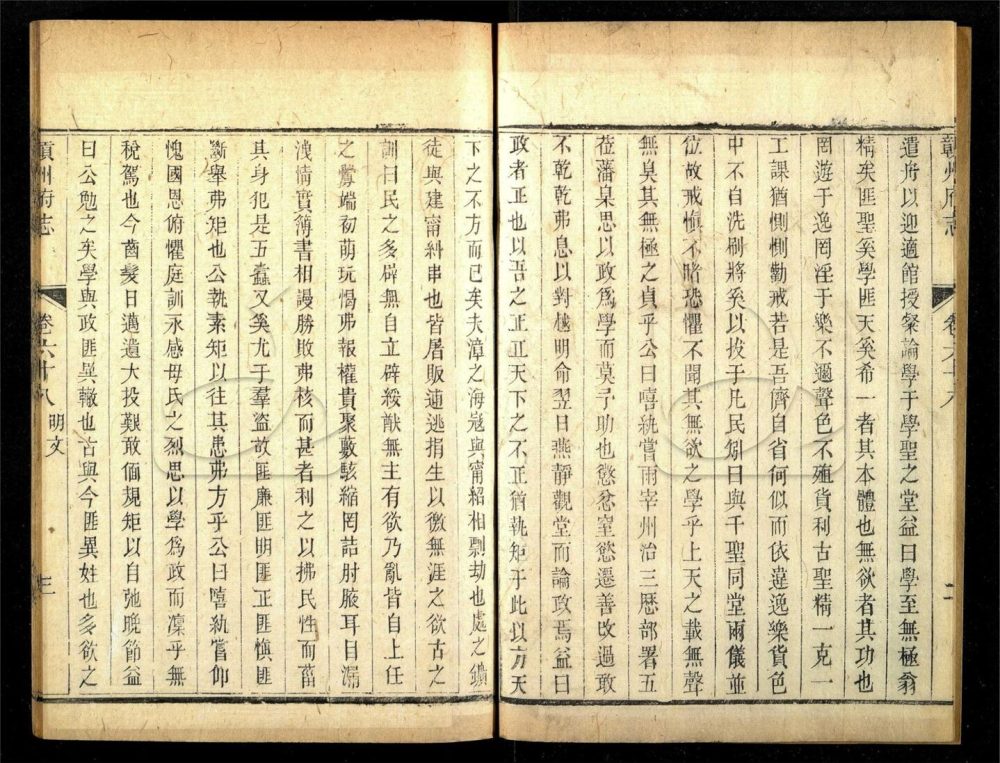 贛州府志
卷六十八
二
遣舟以迎適館授粲論學于學聖之堂益曰學至無極翁
精矣匪聖奚學匪天奚希一者其本體也無欲者其功也
罔遊于逸罔淫于樂不邇聲色不殖貨利古聖精一克一
工課猶惻惻勸戒若是吾儕自省何似而依違逸樂貨色
中不自洗刷將奚以拔于凡民矧曰與千聖同堂兩儀並
位故戒慎不睹恐懼不聞其無欲之學乎上天之載無聲
無臭其無極之貞乎公曰嘻紈嘗兩宰州治三歷部署五
莅藩臬思以政為學而莫予助也懲忿窒慾遷善改過敢
不乾乾弗息以對越明命翌日燕靜觀堂而論政焉益曰
政者正也以吾之正正天下之不正猶執矩于此以方天
下之不方而已矣夫漳之海寇與甯紹相剽劫也處之鑛
徒與建甯糾串也皆屠販逋逃捐生以徼無涯之欲古之
訓曰民之多辟無自立辟綏猷無主有欲乃亂皆自上任
之釁端初萌玩愒弗報權貴聚藪駭縮罔詰肘腋耳目漏
洩情實簿書相謾勝敗弗核而甚者利之以拂民性而菑
其身犯是五蠹又奚尤于羣盜故匪廉匪明匪正匪慎匪
斷舉弗矩也公執素矩以往其患弗方乎公曰嘻紈嘗仰
愧國恩俯懼庭訓永感母氏之烈思以學為政而凜乎無
稅駕也今齒髮日邁遺大投艱敢偭規矩以自弛晚節益
曰公勉之矣學與政匪異轍也古與今匪異姓也多欲之
贛州府志
卷六十八
明文
三